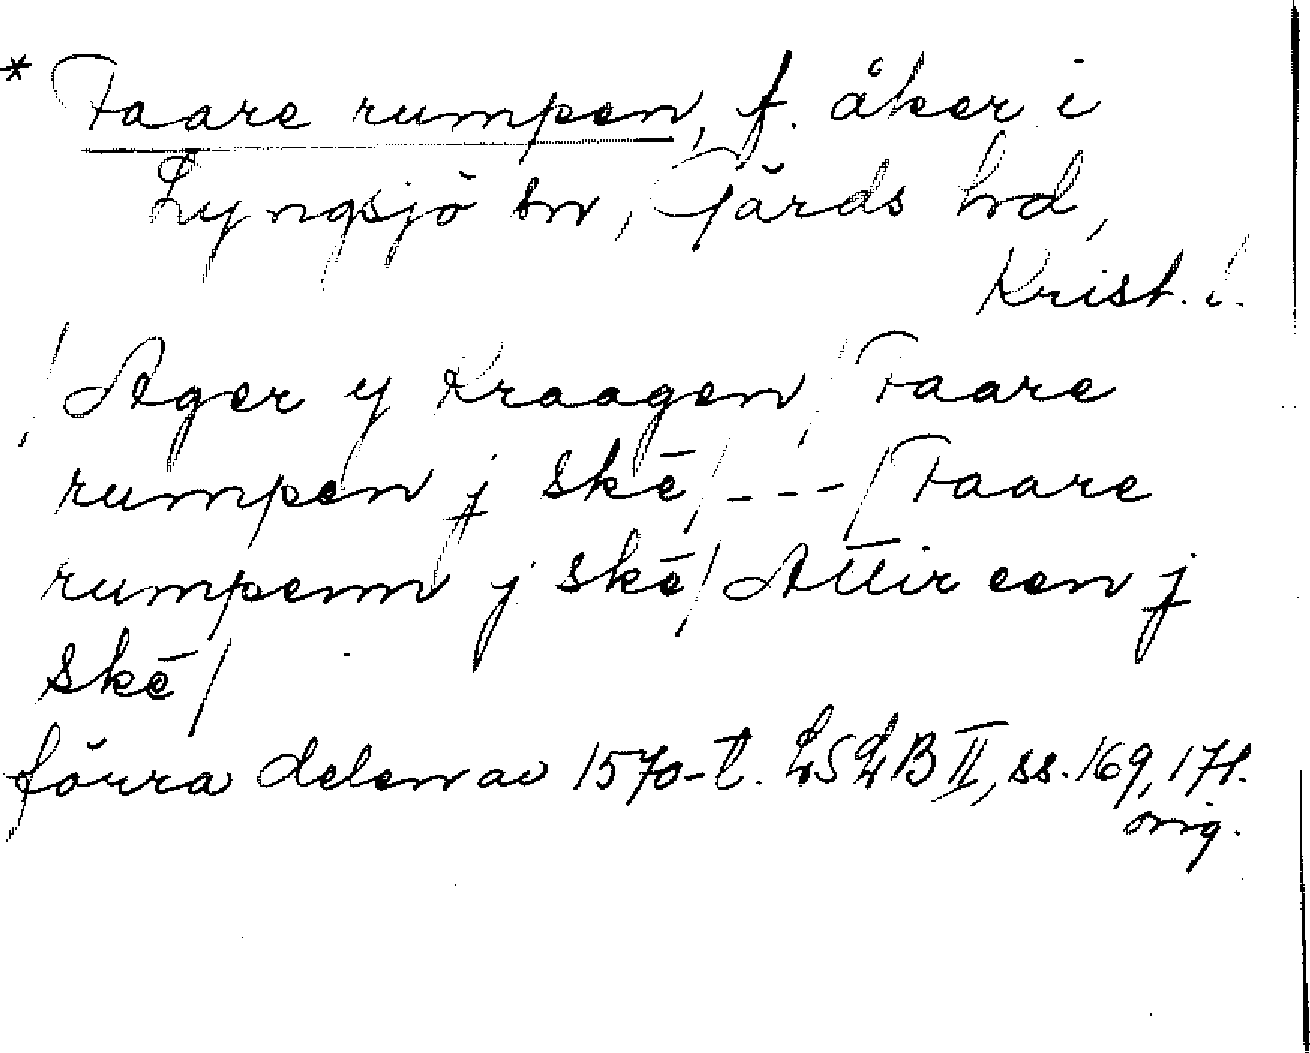 * Faare rumpen, f. åker i
Lyngsjö sn, Gärds hd,
Krist. l.
/ Ager y Kraagen / Faare
rumpen j skē / --- / Faare
rumpenn j skē / Attir een j
skē /
förra delen av 1570-t. LSLB II, ss. 169, 171.
orig.